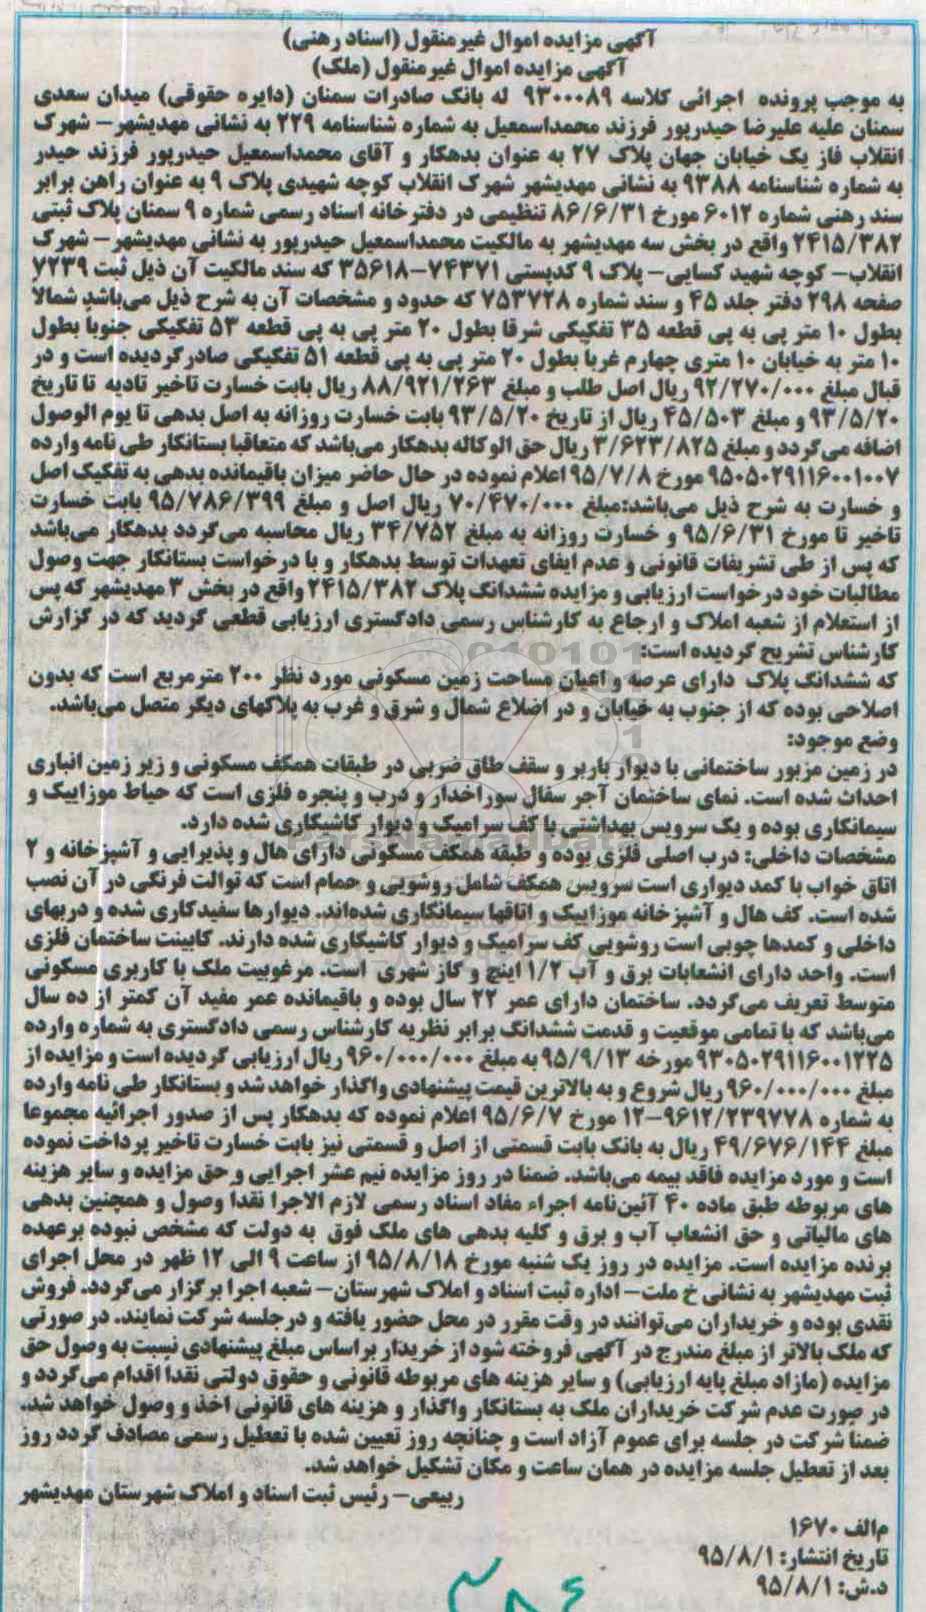 آگهی مزایده اموال غیرمنقول (اسناد رهنی)
آگهی مزایده اموال غیرمنقول (ملک)
به موجب پرونده اجرائی کلاسه ۹۳۰۰۰۸۹ له بانک صادرات سمنان (دایره حقوقی) میدان سعدی
سمنان علیه علیرضا حیدرپور فرزند محمداسمعیل به شماره شناسنامه ۲۲۹ به نشانی مهدیشهر– شهرک
انقلاب فاز یک خیابان جهان پلاک ۲۷ به عنوان بدهکار و آقای محمداسمعیل حیدرپور فرزند حیدر
به شماره شناسنامه ۹۳۸۸ به نشانی مهدیشهر شهرک انقلاب کوچه شهیدی پلاک ۹ به عنوان راهن برابر
سند رهنی شماره ۶۰۱۲ مورخ ۸۶/۶/۳۱ تنظیمی در دفترخانه اسناد رسمی شماره ۹ سمنان پلاک ثبتی
۲۴۱۵/۳۸۲ واقع در بخش سه مهدیشهر به مالکیت محمداسمعیل حیدرپور به نشانی مهدیشهر– شهرک
انقلاب– کوچه شهید کسایی– پلاک ۹ کدپستی ۷۴۳۷۱–۳۵۶۱۸ که سند مالکیت آن ذیل ثبت ۷۲۳۹
صفحه ۲۹۸ دفتر جلد ۴۵ و سند شماره ۷۵۳۷۲۸ که حدود و مشخصات آن به شرح ذیل می‌باشد شمالا
بطول ۱۰ متر پی به پی قطعه ۳۵ تفکیکی شرقا بطول ۲۰ متر پی به پی قطعه ۵۳ تفکیکی جنوبا بطول
۱۰ متر به خیابان ۱۰ متری چهارم غربا بطول ۲۰ متر پی به پی قطعه ۵۱ تفکیکی صادر گردیده است و در
قبال مبلغ ۹۲/۲۷۰/۰۰۰ ریال اصل طلب و مبلغ ۸۸/۹۲۱/۲۶۳ ریال بابت خسارت تاخیر تادیه تا تاریخ
۹۳/۵/۲۰ و مبلغ ۴۵/۵۰۳ ریال از تاریخ ۹۳/۵/۲۰ بابت خسارت روزانه به اصل بدهی تا یوم الوصول
اضافه می‌گردد و مبلغ ۳/۶۲۳/۸۲۵ ریال حق الوکاله بدهکار می‌باشد که متعاقبا بستانکار طی نامه وارده
۹۵۰۵۰۲۹۱۱۶۰۰۱۰۰۷ مورخ ۹۵/۷/۸ اعلام نموده در حال حاضر میزان باقیمانده بدهی به تفکیک اصل
و خسارت به شرح ذیل می‌باشد:مبلغ ۷۰/۴۷۰/۰۰۰ ریال اصل و مبلغ ۹۵/۷۸۶/۳۹۹ بابت خسارت
تاخیر تا مورخ ۹۵/۶/۳۱ و خسارت روزانه به مبلغ ۳۴/۷۵۲ ریال محاسبه می‌گردد بدهکار می‌باشد
که پس از طی تشریفات قانونی و عدم ایفای تعهدات توسط بدهکار و با درخواست بستانکار جهت وصول
مطالبات خود درخواست ارزیابی و مزایده ششدانگ پلاک ۲۴۱۵/۳۸۲ واقع در بخش ۳ مهدیشهر که پس
از استعلام از شعبه املاک و ارجاع به کارشناس رسمی دادگستری ارزیابی قطعی گردید که در گزارش
کارشناس تشریح گردیده است:
که ششدانگ پلاک دارای عرصه و اعیان مساحت زمین مسکونی مورد نظر ۲۰۰ مترمربع است که بدون
اصلاحی بوده که از جنوب به خیابان و در اضلاع شمال و شرق و غرب به پلاکهای دیگر متصل می‌باشد.
وضع موجود:
در زمین مزبور ساختمانی با دیوار باربر و سقف طاق ضربی در طبقات همکف مسکونی و زیر زمین انباری
احداث شده است. نمای ساختمان آجر سفال سوراخدار و درب و پنجره فلزی است که حیاط موزاییک و
سیمانکاری بوده و یک سرویس بهداشتی با کف سرامیک و دیوار کاشیکاری شده دارد.
مشخصات داخلی: درب اصلی فلزی بوده و طبقه همکف مسکونی دارای هال و پذیرایی و آشپزخانه و ۲
اتاق خواب با کمد دیواری است سرویس همکف شامل روشویی و حمام است که توالت فرنگی در آن نصب
شده است. کف هال و آشپزخانه موزاییک و اتاقها سیمانکاری شده‌اند. دیوارها سفیدکاری شده و دربهای
داخلی و کمدها چوبی است روشویی کف سرامیک و دیوار کاشیکاری شده دارند. کابینت ساختمان فلزی
است. واحد دارای انشعابات برق و آب ۱/۲ اینچ و گاز شهری است. مرغوبیت ملک با کاربری مسکونی
متوسط تعریف می‌گردد. ساختمان دارای عمر ۲۲ سال بوده و باقیمانده عمر مفید آن کمتر از ده سال
می‌باشد که با تمامی موقعیت و قدمت ششدانگ برابر نظریه کارشناس رسمی دادگستری به شماره وارده
۹۳۰۵۰۲۹۱۱۶۰۰۱۲۲۵ مورخه ۹۵/۹/۱۳ به مبلغ ۹۶۰/۰۰۰/۰۰۰ ریال ارزیابی گردیده است و مزایده از
مبلغ ۹۶۰/۰۰۰/۰۰۰ ریال شروع و به بالاترین قیمت پیشنهادی واگذار خواهد شد و بستانکار طی نامه وارده
به شماره ۹۶۱۲/۲۳۹۷۷۸–۱۲ مورخ ۹۵/۶/۷ اعلام نموده که بدهکار پس از صدور اجرائیه مجموعا
مبلغ ۴۹/۶۷۶/۱۴۴ ریال به بانک بابت قسمتی از اصل و قسمتی نیز بابت خسارت تاخیر پرداخت نموده
است و مورد مزایده فاقد بیمه می‌باشد. ضمنا در روز مزایده نیم عشر اجرایی و حق مزایده و سایر هزینه
های مربوطه طبق ماده ۴۰ آئین‌نامه اجراء مفاد اسناد رسمی لازم الاجرا نقدا وصول و همچنین بدهی
های مالیاتی و حق انشعاب آب و برق و کلیه بدهی های ملک فوق به دولت که مشخص نبوده برعهده
برنده مزایده است. مزایده در روز یک شنبه مورخ ۹۵/۸/۱۸ از ساعت ۹ الی ۱۲ ظهر در محل اجرای
ثبت مهدیشهر به نشانی خ ملت– اداره ثبت اسناد و املاک شهرستان– شعبه اجرا برگزار می‌گردد. فروش
نقدی بوده و خریداران می‌توانند در وقت مقرر در محل حضور یافته و درجلسه شرکت نمایند. در صورتی
که ملک بالاتر از مبلغ مندرج در آگهی فروخته شود از خریدار براساس مبلغ پیشنهادی نسبت به وصول حق
مزایده (مازاد مبلغ پایه ارزیابی) و سایر هزینه های مربوطه قانونی و حقوق دولتی نقدا اقدام می‌گردد و
در صورت عدم شرکت خریداران ملک به بستانکار واگذار و هزینه های قانونی اخذ و وصول خواهد شد.
ضمنا شرکت در جلسه برای عموم آزاد است و چنانچه روز تعیین شده با تعطیل رسمی مصادف گردد روز
بعد از تعطیل جلسه مزایده در همان ساعت و مکان تشکیل خواهد شد.
ربیعی– رئیس ثبت اسناد و املاک شهرستان مهدیشهر
م‌الف ۱۶۷۰
تاریخ انتشار: ۹۵/۸/۱
د.ش: ۹۵/۸/۱